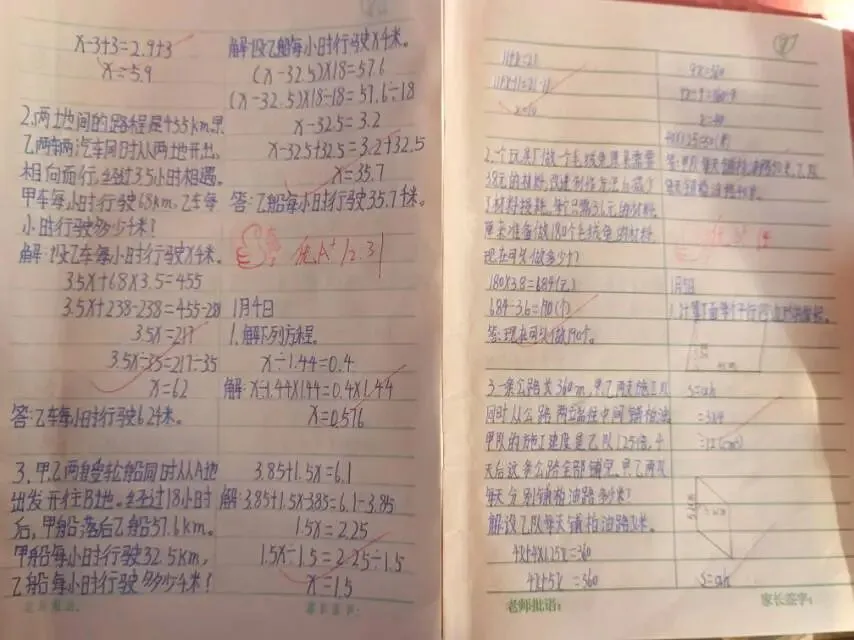 x-3+3=2.9+3
x=5.9
2.两土地间的路程是455km,甲
乙两辆汽车同时从两地开出,
相向而行,经过3.5小时相遇。
甲车每小时行驶68km,乙车每
小时行驶多少千米?
解:设乙车每小时行驶x千米。
3.5x+68×3.5=455
3.5x+238-238=455-238
3.5x=217
3.5x÷35=217÷35
x=62
答:乙车每小时行驶62千米。
3.甲乙两艘轮船同时从A地
出发开往B地。经过18小时
后,甲船落后乙船57.6km。
甲船每小时行驶32.5km,
乙船每小时行驶多少千米?
解:设乙船每小时行驶x千米。
(x-32.5)×18=57.6
(x-32.5)×18÷18=57.6÷18
x-32.5=3.2
x-32.5+32.5=3.2+32.5
x=35.7
答:乙船每小时行驶35.7千米。
优A+ 12.31
1月4日
1.解下列方程。
x÷1.44=0.4
解:x÷1.44×1.44=0.4×1.44
x=0.576
3.85+1.5x=6.1
解:3.85+1.5x-3.85=6.1-3.85
1.5x=2.25
1.5x÷1.5=2.25÷1.5
x=1.5
家长签字:
2.个玩具厂做一个毛绒兔原来需要
3.8元的材料,改进制作方法后减少
了材料损耗,每个只需3.6元的材料。
原来准备做180个毛绒兔的材料,
现在可以做多少个?
180×3.8=684(元)
684÷3.6=190(个)
答:现在可以做190个。
3.一条公路长360m,甲乙两支施工队
同时从公路两端往中间铺柏油
甲队的施工速度是乙队1.25倍,4
天后这条公路全部铺完,甲乙两队
每天分别铺柏油路多少米?
解:设乙队每天铺柏油路x米。
4x+4×1.25x=360
4x+5x=360
老师批语:
9x=360
9x÷9=360÷9
x=40
1月5日
s=ah
s=ah
家长签字: